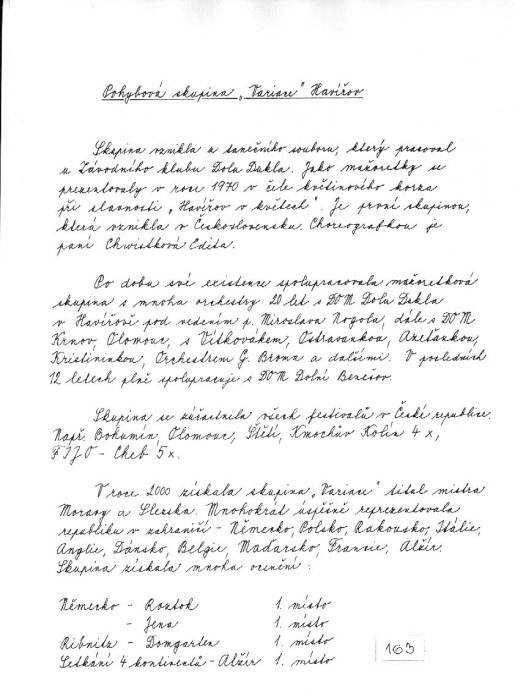 Pohybová skupina „Variace" Havířov
Skupina vznikla u tanečního souboru, který pracoval
u Závodního klubu Dolu Dukla. Jako mažoretky se
prezentovaly v roce 1970 v čele květinového korza
při slavnosti „Havířov v květech". Je první skupinou,
která vznikla v Československu. Choreografkou je
paní Chwistková Edita.
Po dobu své existence spolupracovala mažoretková
skupina s mnoha orchestry. 20 let s DOM Dolu Dukla
v Havířově pod vedením p. Miroslava Nogola, dále s DOM
Krnov, Olomouc, s Vítkovákem, Ostravankou,
Kristininkou, Orchestrem G. Broma a dalšími. V posledních
12 letech plně spolupracuje s DOM Dolní Benešov.
Skupina se zúčastnila všech festivalů v České republice.
Např. Bohumín, Olomouc, Štětí, Kmochův Kolín 4x,
FIJO - Cheb 5x.
V roce 2000 získala skupina „Variace" titul mistra
Moravy a Slezska. Mnohokrát úspěšně reprezentovala
republiku v zahraničí - Německo, Polsko, Rakousko, Itálie,
Anglie, Dánsko, Belgie, Maďarsko, Francie, Alžír.
Skupina získala mnoho ocenění:
Německo - Rostok 1. místo
- Jena 1. místo
Ribnitz - Domgarten 1. místo
Setkání 4 kontinentů - Alžír 1. místo
163